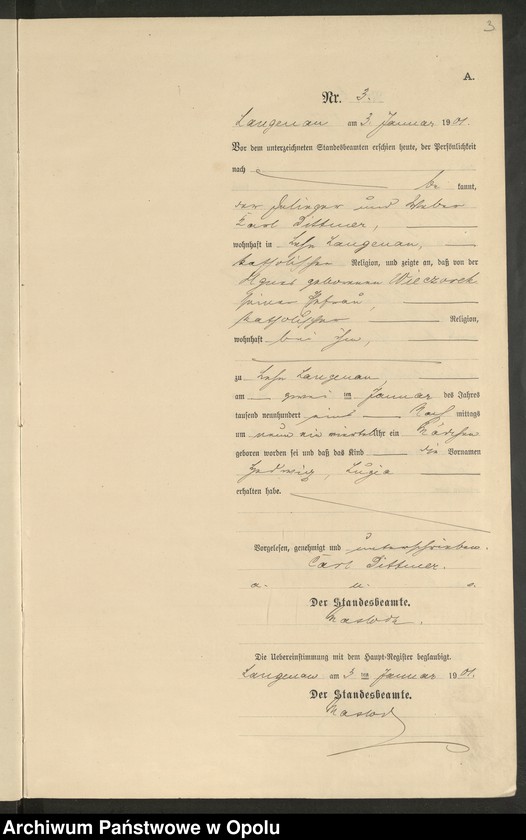 3
A.
Nr. 3.
Langenau am 3. Januar 1901.
Vor dem unterzeichneten Standesbeamten erschien heute, der Persönlichkeit
nach be kannt,
der und Weber
Karl Dittmer,
wohnhaft in Langenau,
katholischer Religion, und zeigte an, daß von der
Agnes geborenen Wieczorek
seiner Ehefrau,
katholischer Religion,
wohnhaft bei ihm,
zu Langenau,
am zwei ten Januar des Jahres
tausend neunhundert eins Nach mittags
um neun ein viertel Uhr ein Mädchen
geboren worden sei und daß das Kind die Vornamen
Hedwig, Luzia
erhalten habe.
Vorgelesen, genehmigt und unterschrieben.
Carl Dittmer.
a. u. s.
Der Standesbeamte.
Die Uebereinstimmung mit dem Haupt-Register beglaubigt.
Langenau am 3 ten Januar 1901.
Der Standesbeamte.
Archiwum Państwowe w Opolu